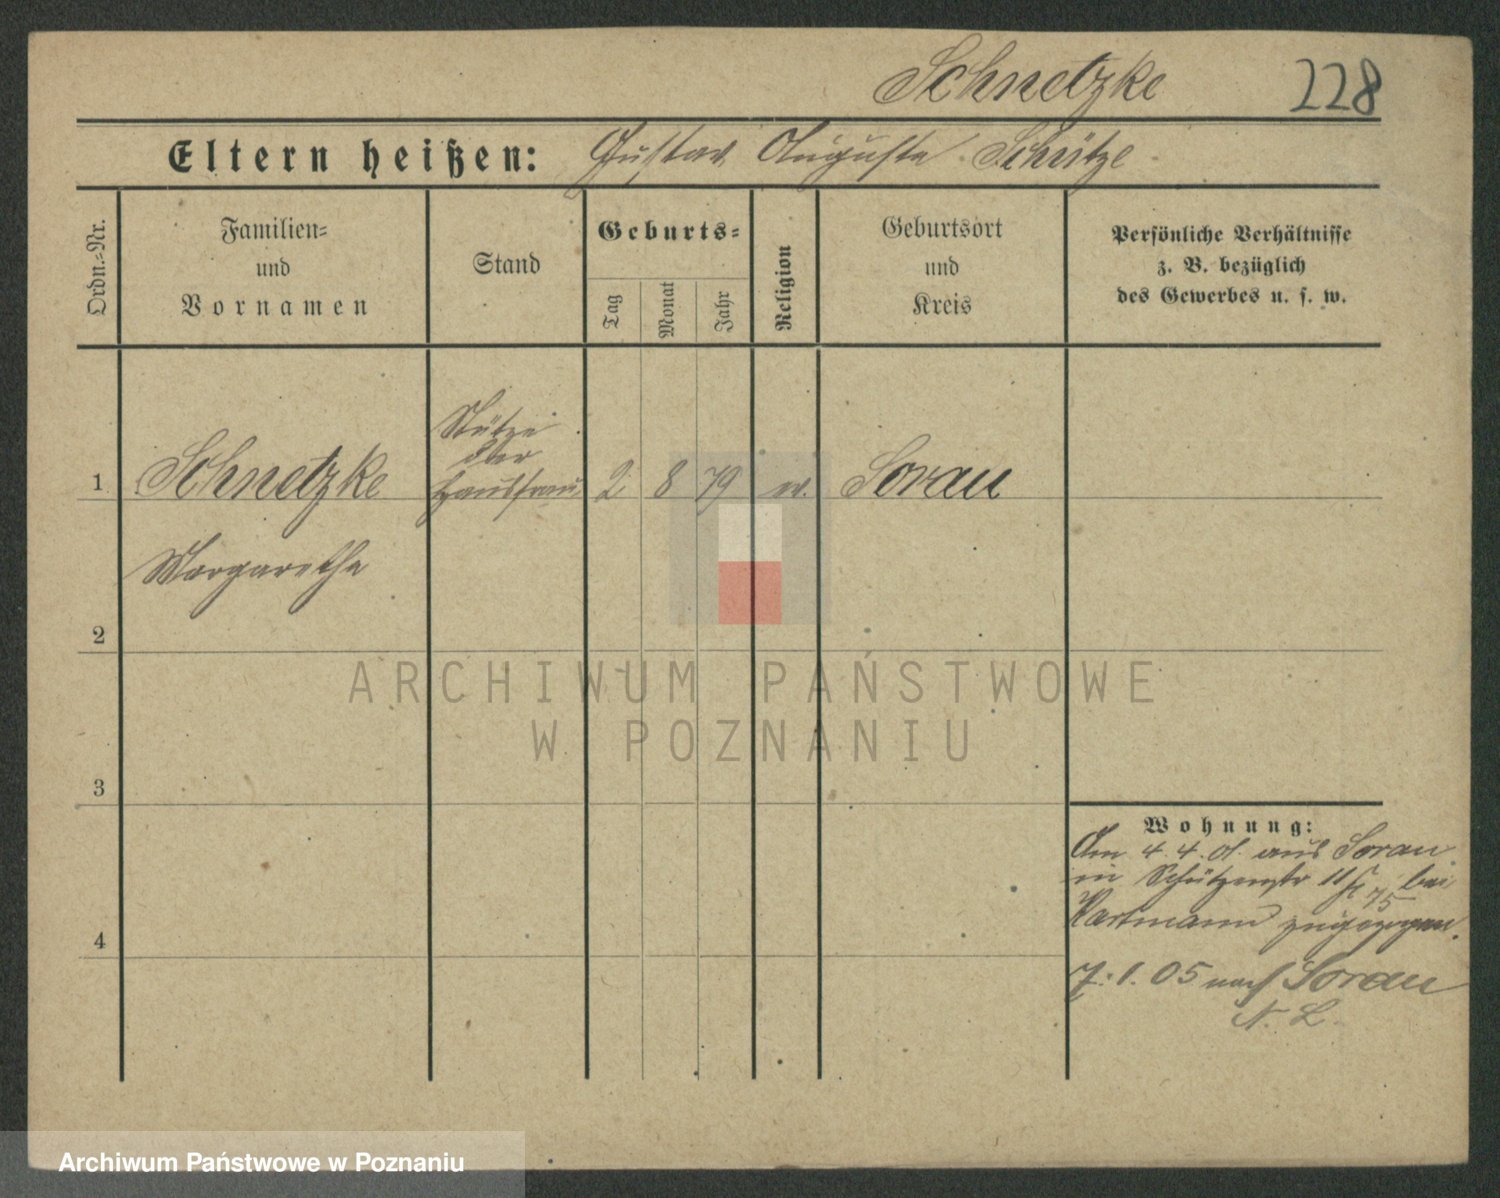 Schnetzke
228
Eltern heißen: Gustav Auguste Schütze
Ordn.=Nr.
Familien=
und
Vornamen
Stand
Geburts=
Tag
Monat
Jahr
Religion
Geburtsort
und
Kreis
Persönliche Verhältnisse
z. B. bezüglich
des Gewerbes u. s. w.
1 Schnetzke
Margarethe
Stütze
der
Hausfrau
2 8 79 ev. Sorau
2
3
4
Wohnung:
Am 4. 4. 01. aus Sorau
in Schützenstr 11 bei
Hartmann zugezogen.
7. 1. 05 nach Sorau
N. L.
ARCHIWUM PAŃSTWOWE
W POZNANIU
Archiwum Państwowe w Poznaniu